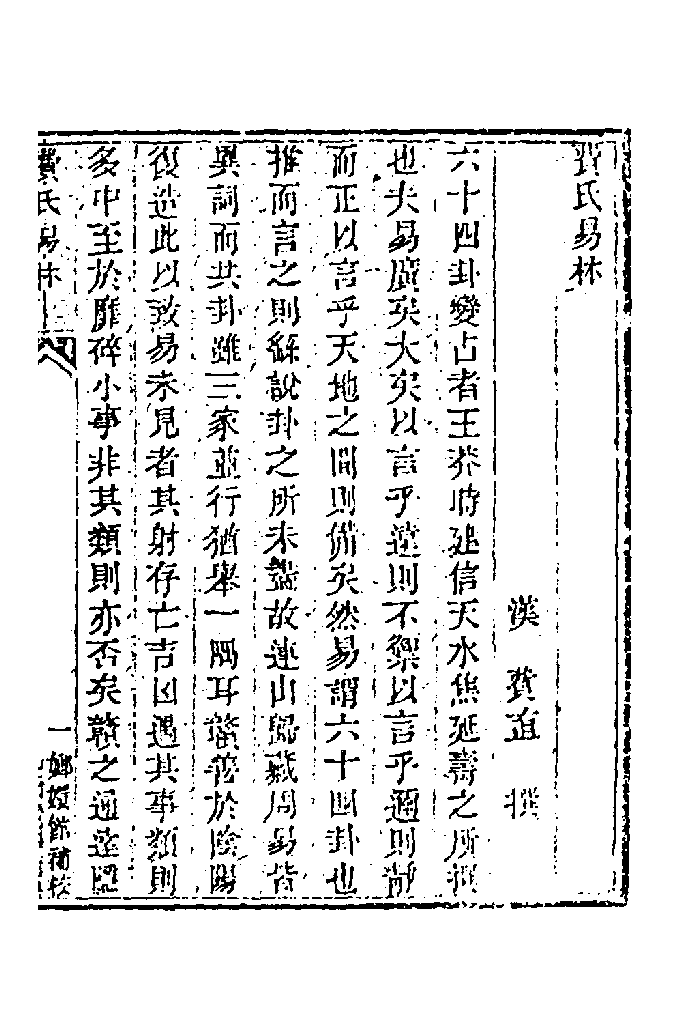 費氏易林
漢 費直 撰
六十四卦變占者王莽時建信天水焦延壽之所撰
也夫易廣矣大矣以言乎遠則不禦以言乎邇則靜
而正以言乎天地之間則備矣然易謂六十四卦也
推而言之則繇說卦之所未盡故連山歸藏周易皆
異詞而共卦雖三家並行猶舉一隅耳贛善於陰陽
復造此以致易未見者其射存亡吉凶遇其事類則
多中至於靡碎小事非其類則亦否矣贛之通達隱
費氏易林
一
嫏嬛館補校